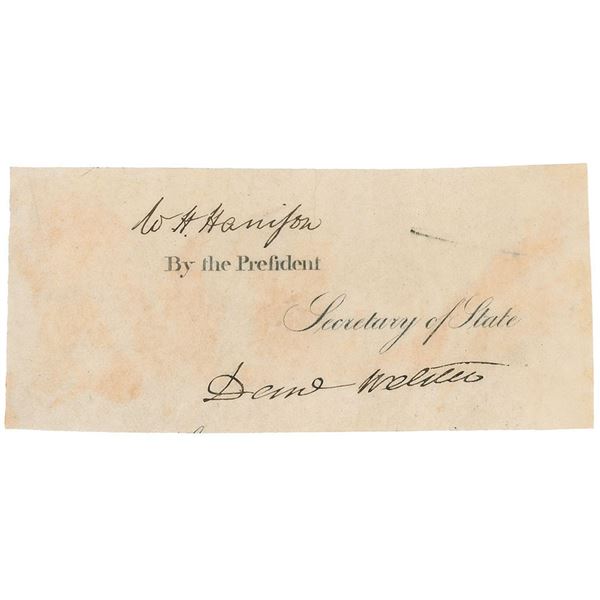 W H Harriſon
By the Preſident
Secretary of State
Danl Webster